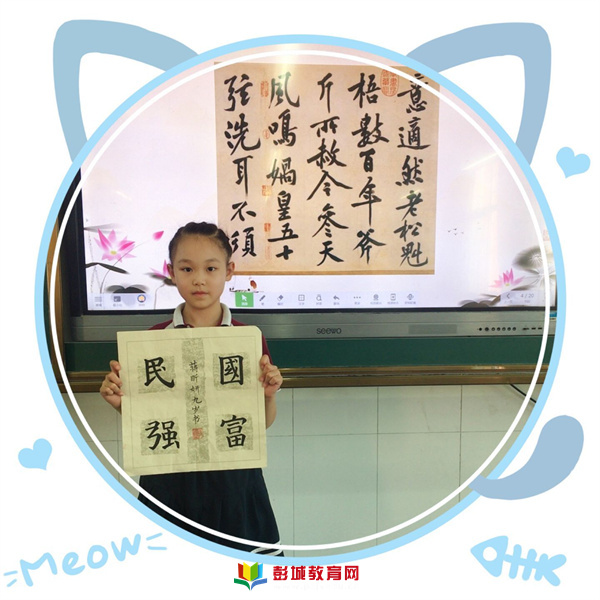 意適然老松魁
梧數百年斧
斤所赦今參天
風鳴媧皇五十
弦洗耳不須
國富
民强
九岁书
Meow
彭城教育网